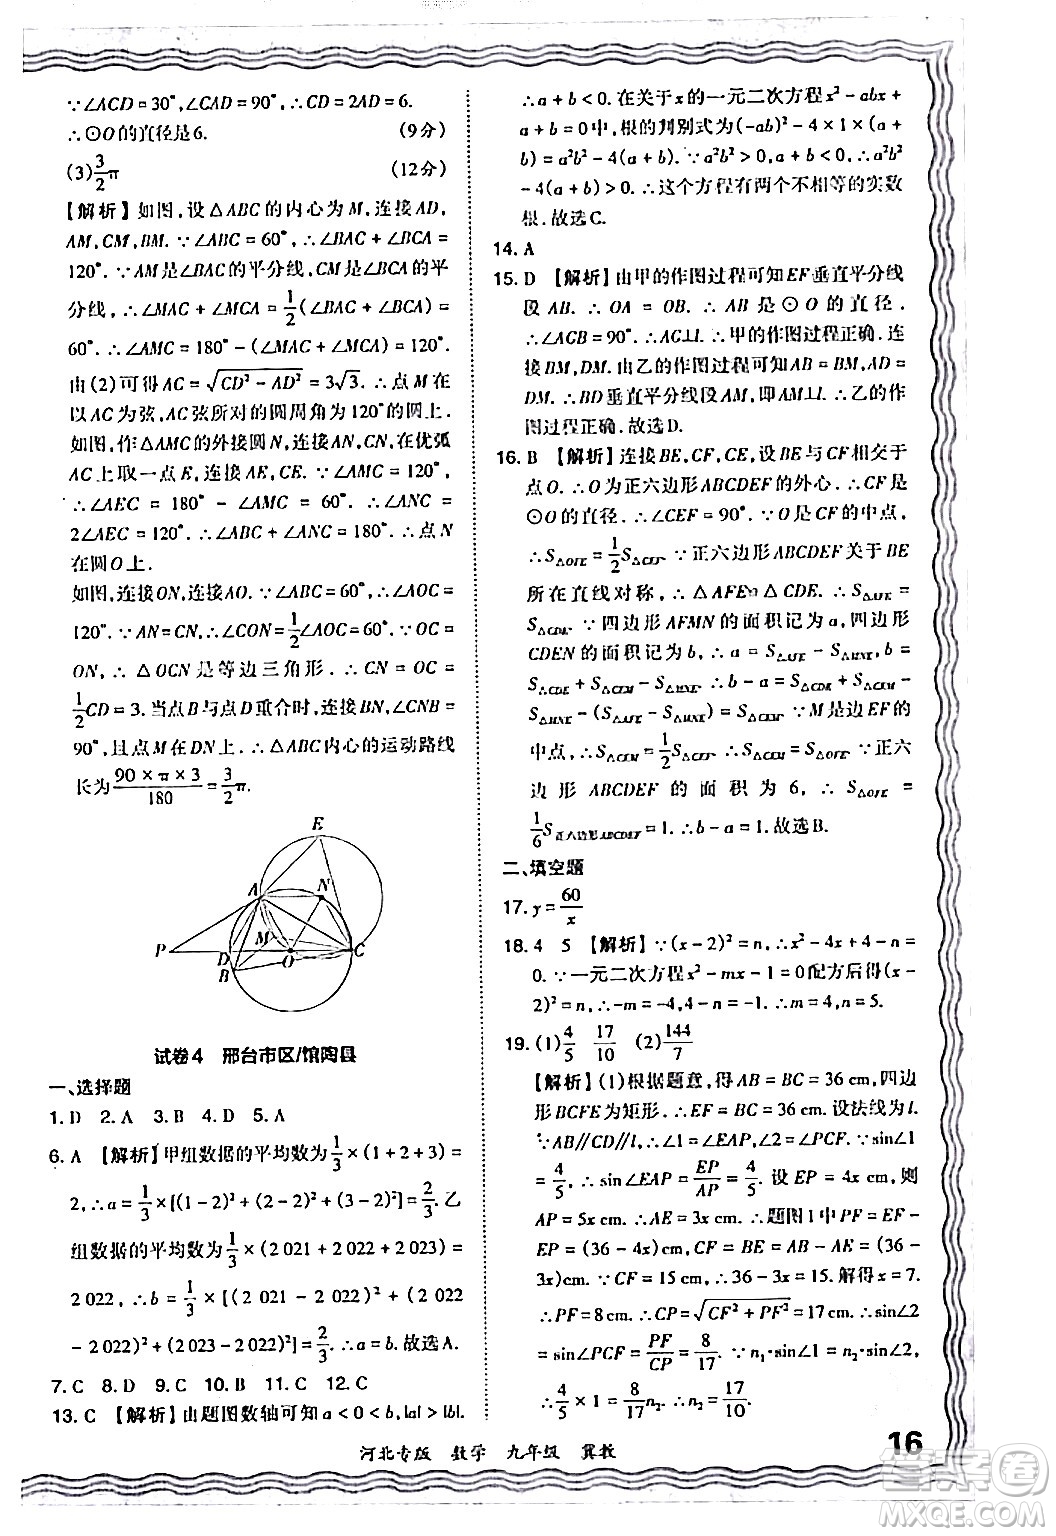 ∵∠ACD=30°,∠CAD=90°,∴CD=2AD=6.
∴⊙O的直径是6. (9分)
(3)3/2π (12分)
【解析】如图,设△ABC的内心为M,连接AD,
AM,CM,BM.∵∠ABC=60°,∴∠BAC+∠BCA=
120°.∵AM是∠BAC的平分线,CM是∠BCA的平
分线,∴∠MAC+∠MCA=1/2(∠BAC+∠BCA)=
60°.∴∠AMC=180°-(∠MAC+∠MCA)=120°.
由(2)可得AC=√(CD²-AD²)=3√3.∴点M在
以AC为弦,AC弦所对的圆周角为120°的圆上.
如图,作△AMC的外接圆N,连接AN,CN,在优弧
AC上取一点E,连接AE,CE.∵∠AMC=120°,
∴∠AEC=180°-∠AMC=60°.∴∠ANC=
2∠AEC=120°.∴∠ABC+∠ANC=180°.∴点N
在圆O上.
如图,连接ON,连接AO.∵∠ABC=60°,∴∠AOC=
120°.∵AN=CN,∴∠CON=1/2∠AOC=60°.∵OC=
ON,∴△OCN是等边三角形.∴CN=OC=
1/2CD=3.当点B与点D重合时,连接BN,∠CNB=
90°,且点M在DN上.∴△ABC内心的运动路线
长为(90×π×3)/180=3/2π.
E
A
N
M
P
D
O
C
B
试卷4 邢台市区/馆陶县
一、选择题
1.D 2.A 3.B 4.D 5.A
6.A 【解析】甲组数据的平均数为1/3×(1+2+3)=
2,∴a=1/3×[(1-2)²+(2-2)²+(3-2)²]=2/3.乙
组数据的平均数为1/3×(2 021+2 022+2 023)=
2 022,∴b=1/3×[(2 021-2 022)²+(2 022
-2 022)²+(2 023-2 022)²]=2/3.∴a=b.故选A.
7.C 8.D 9.C 10.B 11.C 12.C
13.C 【解析】由题图数轴可知a<0<b,|a|>|b|.
∴a+b<0.在关于x的一元二次方程x²-abx+
a+b=0中,根的判别式为(-ab)²-4×1×(a+
b)=a²b²-4(a+b).∵a²b²>0,a+b<0,∴a²b²
-4(a+b)>0.∴这个方程有两个不相等的实数
根.故选C.
14.A
15.D 【解析】由甲的作图过程可知EF垂直平分线
段AB.∴OA=OB.∴AB是⊙O的直径.
∴∠ACB=90°.∴AC⊥l.∴甲的作图过程正确.连
接BM,DM.由乙的作图过程可知AB=BM,AD=
DM.∴BD垂直平分线段AM,即AM⊥l.∴乙的作
图过程正确.故选D.
16.B 【解析】连接BE,CF,CE,设BE与CF相交于
点O.∴O为正六边形ABCDEF的外心.∴CF是
⊙O的直径.∴∠CEF=90°.∵O是CF的中点,
∴S△OFE=1/2S△CEF.∵正六边形ABCDEF关于BE
所在直线对称,∴△AFE≌△CDE.∴S△AFE=
S△CDE.∵四边形AFMN的面积记为a,四边形
CDEN的面积记为b,∴a=S△AFE-S△MNE,b=
S△CDE+S△CEM-S△MNE.∴b-a=S△CDE+S△CEM-
S△MNE-(S△AFE-S△MNE)=S△CEM.∵M是EF的
中点,∴S△CEM=1/2S△CEF.∴S△CEM=S△OFE.∵正六
边形ABCDEF的面积为6,∴S△OFE=
1/6S正六边形ABCDEF=1.∴b-a=1.故选B.
二、填空题
17.y=60/x
18.4 5 【解析】∵(x-2)²=n,∴x²-4x+4-n=
0.∵一元二次方程x²-mx-1=0配方后得(x-
2)²=n,∴-m=-4,4-n=-1.∴m=4,n=5.
19.(1)4/5 17/10 (2)144/7
【解析】(1)根据题意,得AB=BC=36 cm,四边
形BCFE为矩形.∴EF=BC=36 cm.设法线为l.
∵AB∥CD∥l,∴∠1=∠EAP,∠2=∠PCF.∵sin∠1
=4/5,∴sin∠EAP=EP/AP=4/5.设EP=4x cm,则
AP=5x cm.∴AE=3x cm.∴题图1中PF=EF-
EP=(36-4x)cm,CF=BE=AB-AE=(36-
3x)cm.∵CF=15 cm,∴36-3x=15.解得x=7.
∴PF=8 cm.∴CP=√(CF²+PF²)=17 cm.∴sin∠2
=sin∠PCF=PF/CP=8/17.∵n₁·sin∠1=n₂·sin∠2,
∴4/5×1=8/17n₂.∴n₂=17/10.
16
河北专版 数学 九年级 冀教
答案圈
MXQE.COM